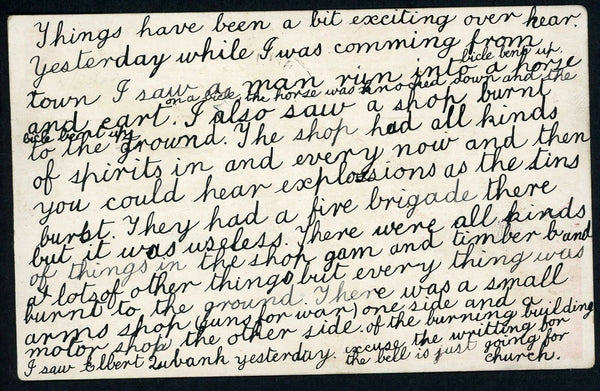 Things have been a bit exciting over hear.
Yesterday while I was comming from
town I saw a man run into a horse
on a bicle the horse was knocked down and the bicle bent up.
and cart. I also saw a shop burnt
to the ground. The shop had all kinds
of spirits in and every now and then
you could hear explosions as the tins
burst. They had a fire brigade there
but it was useless. There were all kinds
of things in the shop gam and timber and
a lots of other things but every thing was
burnt to the ground. There was a small
arms shop (guns for war) one side and a
motor shop the other side. of the burning building
I saw Elbert Eubank yesterday. excuse the writting for
the bell is just going for
church.